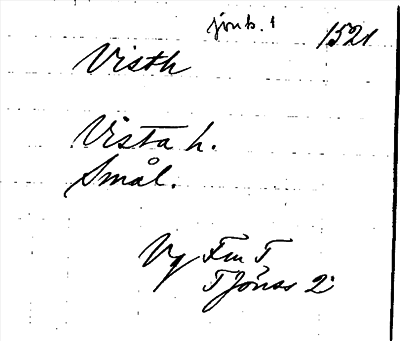 jönk. 1 1521
Visth
Vista h.
Smål.
Vg Fm T
T Jönss 2